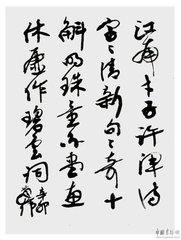 江南才子许浑诗
字々清新句々奇十
斛明珠量不尽惠
休虚作碧云词